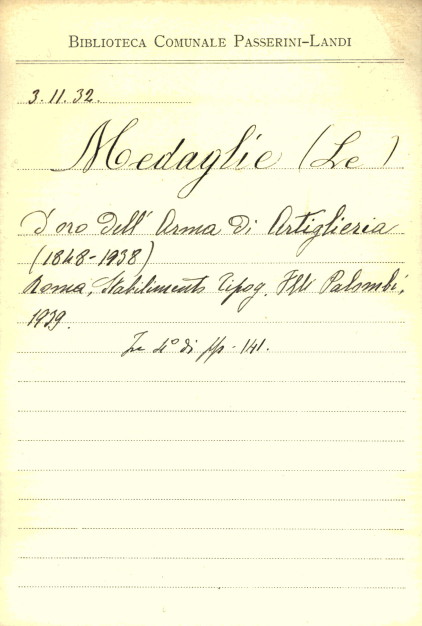 BIBLIOTECA COMUNALE PASSERINI-LANDI
3.11.32.
Medaglie (Le)
D'oro dell'Arma di Artiglieria
(1848-1938)
Roma, Stabilimento Tipog. Flli Palombi,
1939.
In 4° di pp. 141.